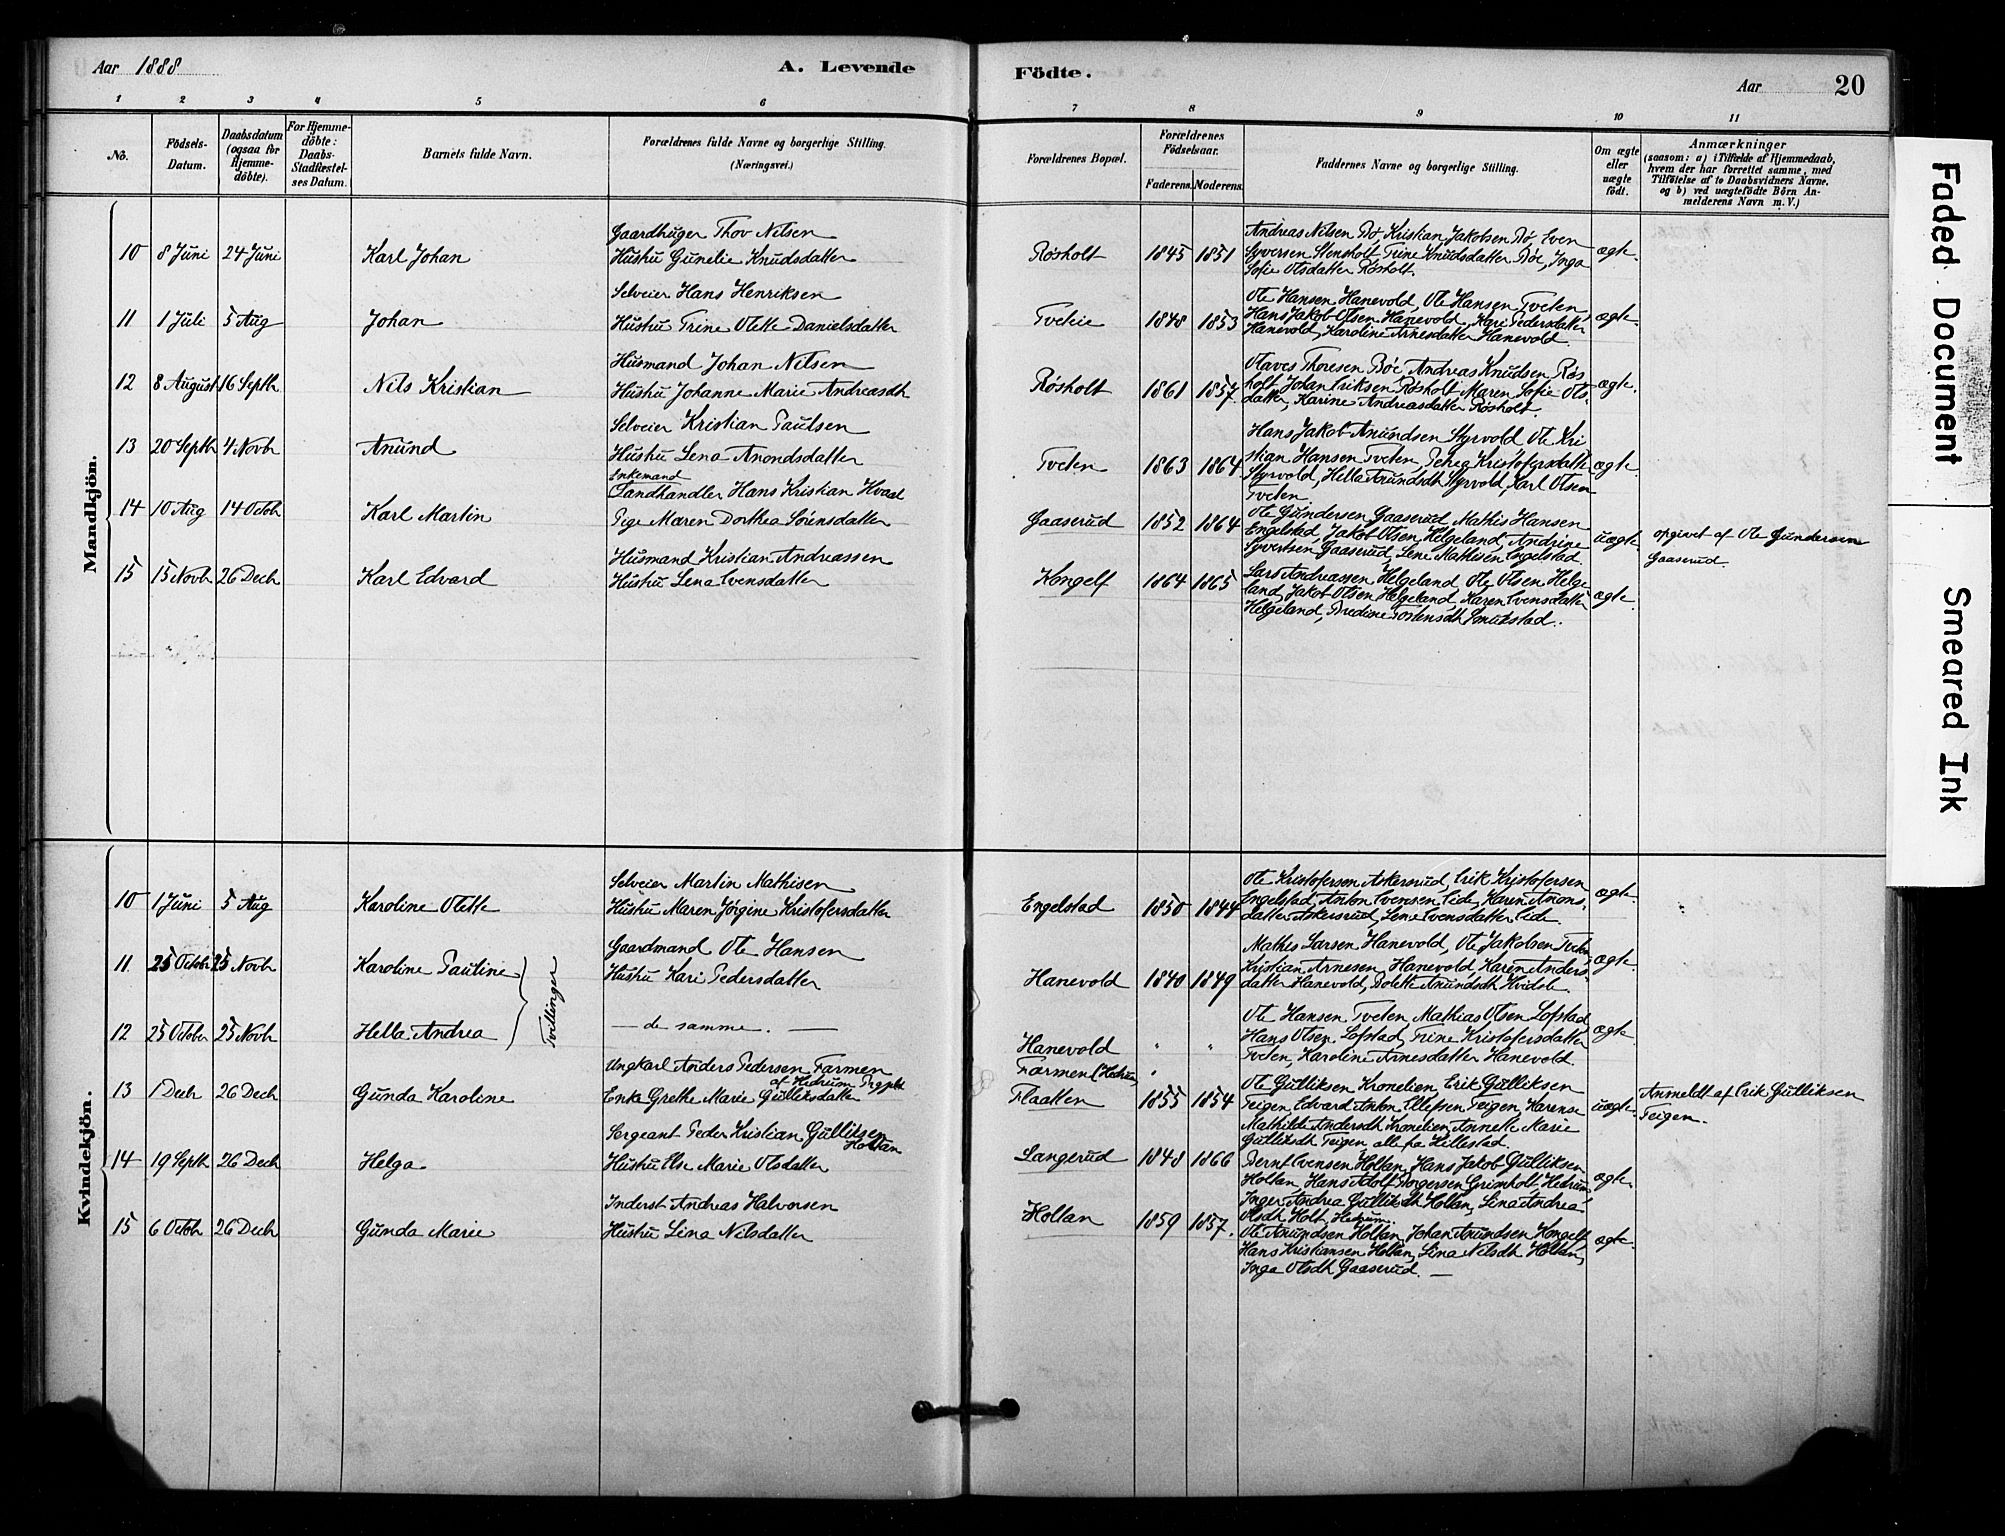 Aar 1888
A. Levende Födte.
Aar
20
1 2 3 4 5 6 7 8 9 10 11
No.
Födsels-Datum.
Daabsdatum (ogsaa for Hjemme-döbte).
For Hjemme-döbte: Daabs-Stadfæstel-ses Datum.
Barnets fulde Navn.
Forældrenes fulde Navne og borgerlige Stilling.
(Næringsvei.)
Forældrenes Bopæl.
Forældrenes Födselsaar.
Faderens. Moderens.
Faddernes Navne og borgerlige Stilling.
Om ægte eller uægte födt.
Anmærkninger
(saasom: a) i Tilfælde af Hjemmedaab, hvem der har forrettet samme, med Tilföielse af to Daabsvidners Navne, og b) ved uægtefödte Börn An-melderens Navn m. V.)
Mandkjön.
10 8 Juni 24 Juni Karl Johan
Gaardbruger Thov Nilsen
Hustru Gunelie Knudsdatter
Røsholt 1845 1851
Andreas Nilsen Bø, Kristian Jakobsen Bø, Even
Syversen Stensholt, Trine Knudsdatter Bøe, Inga
Sofie Olsdatter Røsholt.
ægte.
11 1 Juli 5 Aug Johan
Selveier Hans Henriksen
Hustru Trine Olette Danielsdatter
Tveten 1848 1853
Ole Hansen Hanevold, Ole Hansen Tveten,
Hans Jakob Olsen Hanevold, Kari Pedersdatter
Hanevold, Karoline Arnesdatter Hanevold.
ægte.
12 8 August 16 Septb Nils Kristian
Husmand Johan Nilsen
Hustru Johanne Marie Andreasdtr
Røsholt 1861 1857
Olaves Thoresen Bøe, Andreas Knudsen Røs
holt, Johan Eriksen Røsholt, Maren Sofie Ols-
datter, Karine Andreasdatter Røsholt.
ægte.
13 20 Septb 4 Novb Anund
Selveier Kristian Paulsen
Hustru Lena Anondsdatter
Tveten 1863 1864
Hans Jakob Anundsen Styrvold, Ole Kri
stian Hansen Tveten, Petrea Kristofersdatter
Styrvold, Hella Anundsdtr Styrvold, Karl Olsen
Tveten.
ægte.
14 10 Aug 14 Octob Karl Martin
Enkemand
Landhandler Hans Kristian Hvaal
Pige Maren Dorthea Sörensdatter
Gaaserud 1852 1864
Ole Gundersen Gaaserud, Mathis Hansen
Engelstad, Jakob Olsen Helgeland, Andrine
Syvertsen Gaaserud, Lene Mathisen Engelstad.
uægte.
opgivet af Ole Gundersen
Gaaserud.
15 15 Novb 26 Decb Karl Edvard
Husmand Kristian Andreassen
Hustru Lena Evensdatter
Kongelf 1864 1865
Lars Andreassen Helgeland, Ole Olsen Helge
land, Jakob Olsen Helgeland, Karen Evensdatter
Helgeland, Bredine Tostensdtr Smukstad.
ægte.
Kvindekjön.
10 1 Juni 5 Aug Karoline Olette
Selveier Martin Mathisen
Hustru Maren Jörgine Kristofersdatter
Engelstad 1850 1844
Ole Kristofersen Askersrud, Erik Kristofersen
Engelstad, Anton Evensen Eide, Karen Anons-
datter Askersrud, Lene Evensdatter Eide.
ægte.
11 25 Octobr 25 Novb Karoline Pauline
Tvillinger
Gaardmand Ole Hansen
Hustru Kari Pedersdatter
Hanevold 1840 1849
Mathis Larsen Hanevold, Ole Jakobsen Tveten,
Kristian Arnesen Hanevold, Karen Anders-
datter Hanevold, Bolette Anundsdtr Hvidste.
ægte.
12 25 October 25 Novb Hella Andrea
— de samme. —
Hanevold " "
Ole Hansen Tveten, Mathias Olsen Lofstad,
Hans Olsen Lofstad, Trine Kristofersdatter
Tveten, Karoline Arnesdatter Hanevold.
ægte.
13 1 Decb 26 Decb Gunda Karoline
Ungkarl Anders Pedersen Farmen
af Hedrum Prgjeld
Enke Grethe Marie Gulliksdatter
Farmen (Hedrum)
Flaatten 1855 1854
Ole Gulliksen Kronelien, Erik Gulliksen
Teigen, Edvard Anton Ellefsen Teigen, Karense
Mathilde Andersdtr Kronelien, Annette Marie
Gulliksdtr Teigen, alle fra Hillestad.
uægte.
Anmeldt af Erik Gulliksen
Teigen.
14 19 Septb 26 Decb Helga
Sergeant Peder Kristian Gulliksen
Holtan
Hustru Else Marie Olsdatter
Langerud 1848 1866
Bernt Evensen Holtan, Hans Jakob Gulliksen
Holtan, Hans Adolf Borgersen Grimholt Hedrum,
Inger Andrea Gulliksdtr Holtan, Lina Andrea
Olsdtr Holt, Hedrum.
ægte.
15 6 Octbr 26 Decb Gunda Marie
Inderst Andreas Halvorsen
Hustru Lina Nilsdatter
Holtan 1859 1857.
Ole Anundsen Holtan, Johan Anundsen Kongelf,
Hans Kristiansen Holtan, Lina Nilsdtr Holtan,
Inga Olsdtr Gaaserud. —
ægte.
Faded Document
Smeared Ink